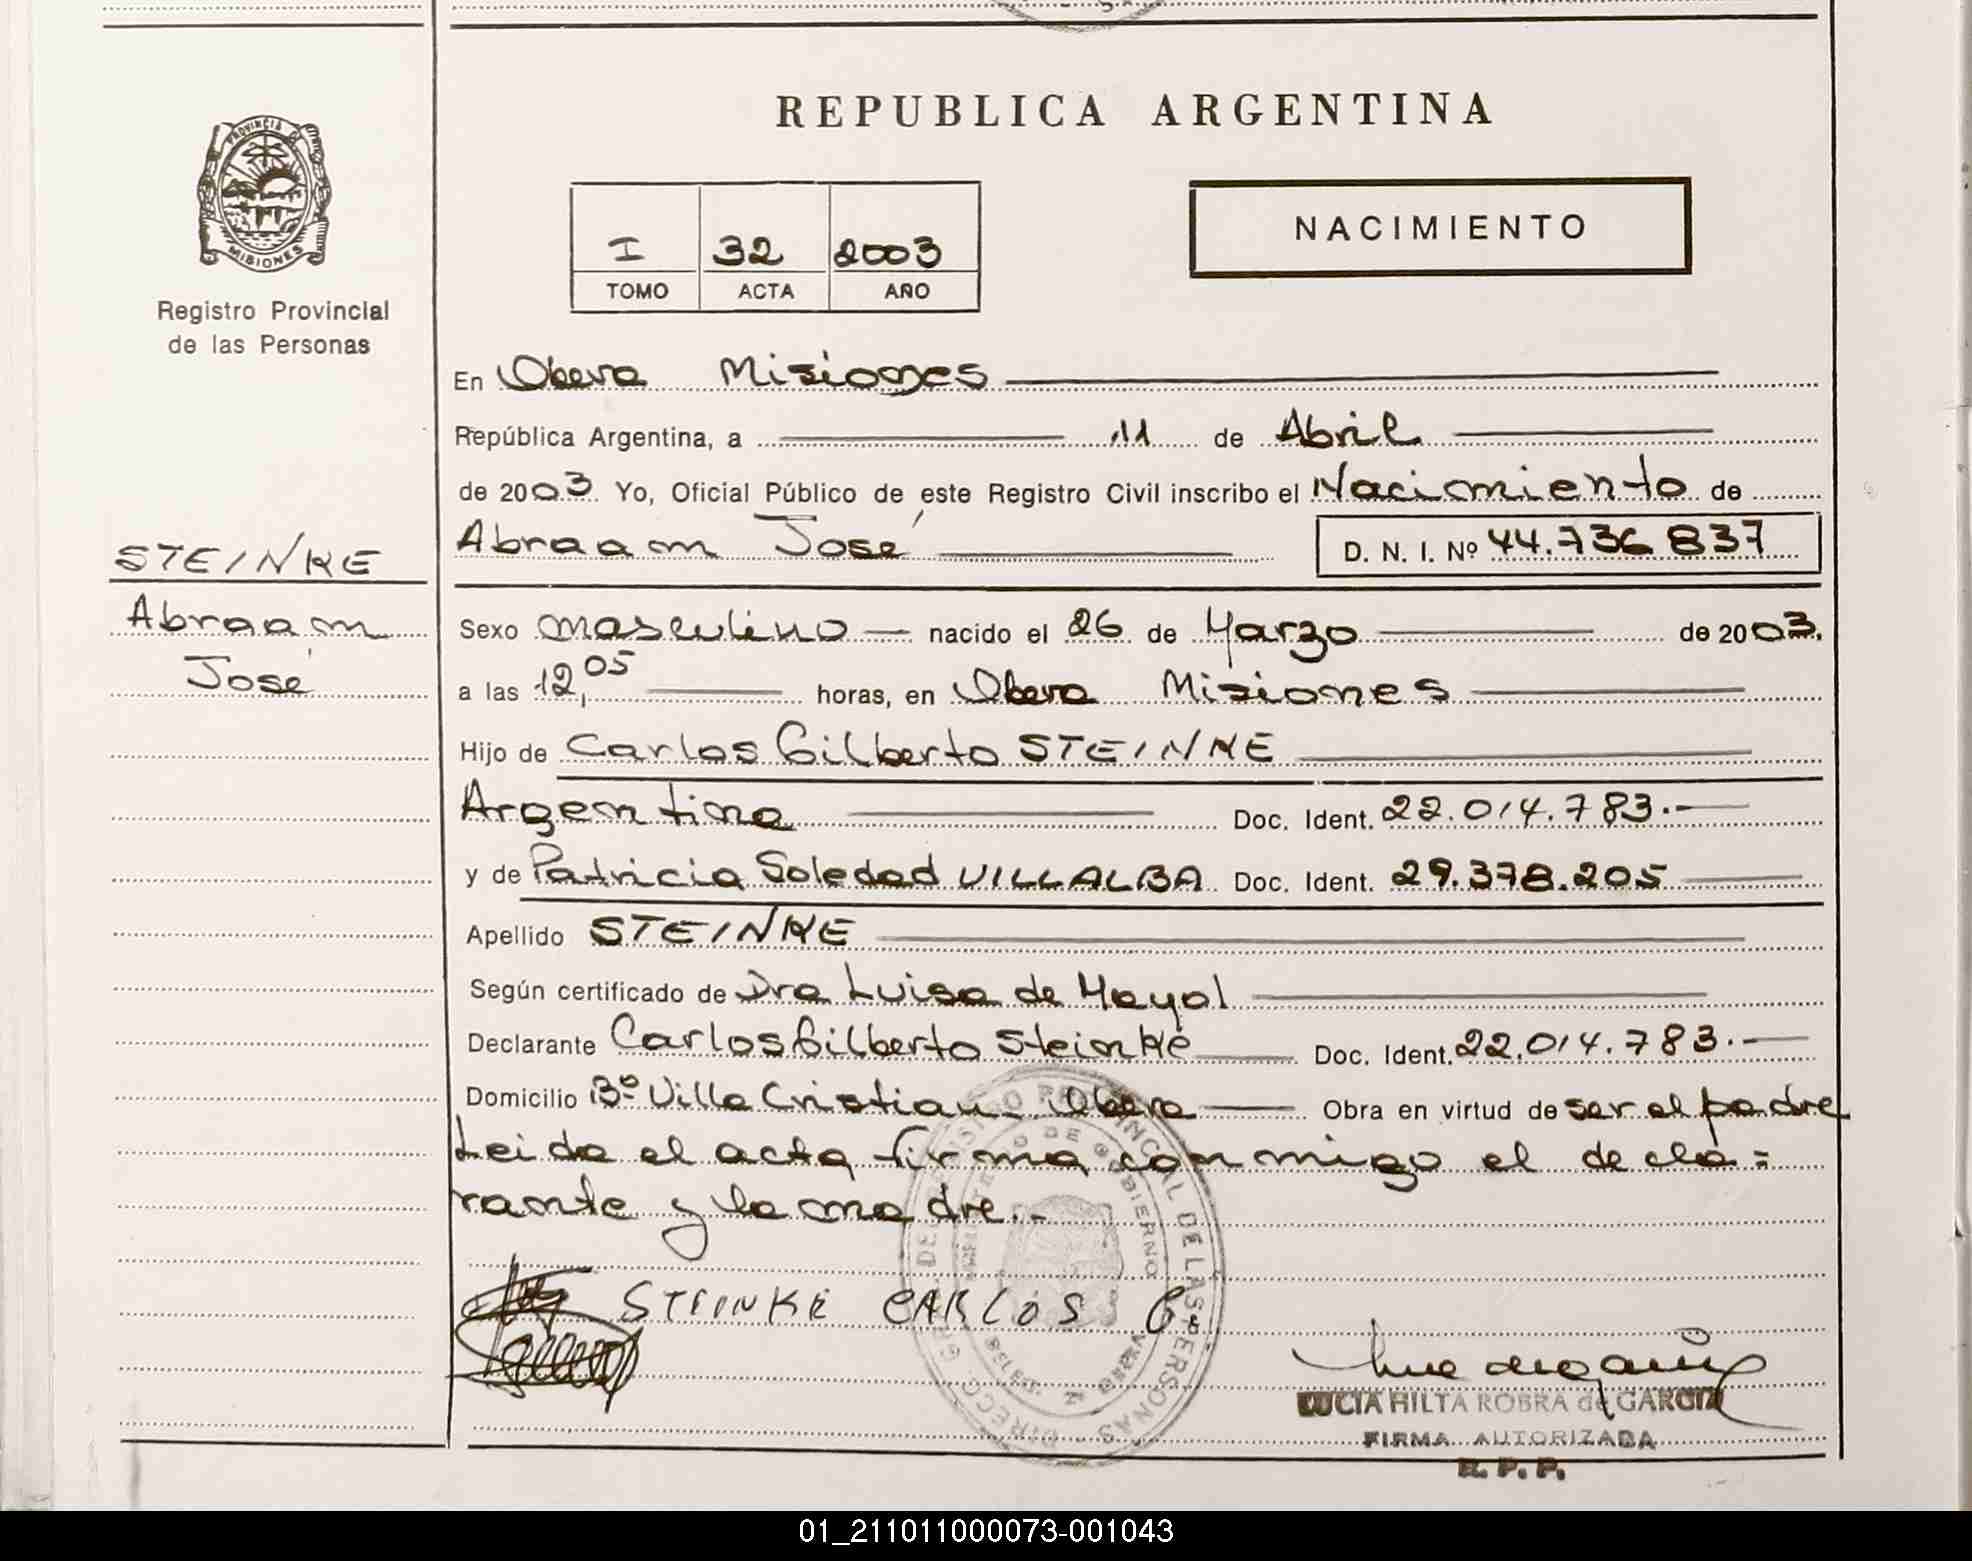 REPUBLICA ARGENTINA
PROVINCIA DE
MISIONES
Registro Provincial
de las Personas
I 32 2003
TOMO ACTA AÑO
NACIMIENTO
En Obera Misiones
República Argentina, a 11 de Abril
de 2003. Yo, Oficial Público de este Registro Civil inscribo el Nacimiento de
Abraam José D. N. I. Nº 44.736 837
STEINKE
Abraam
José
Sexo masculino nacido el 26 de Marzo de 2003.
a las 12,05 horas, en Obera Misiones
Hijo de Carlos Gilberto STEINKE
Argentina Doc. Ident. 22.014.783.-
y de Patricia Soledad VILLALBA Doc. Ident. 29.378.205
Apellido STEINKE
Según certificado de Dra Luisa de Mayol
Declarante Carlos Gilberto Steinke Doc. Ident. 22.014.783.-
Domicilio Bº Villa Cristian - Obera Obra en virtud de ser el padre
Leida el acta firma conmigo el decla=
rante y la madre.-
STEINKE CARLOS G
LUCIA HILTA ROBRA de GARCIA
FIRMA AUTORIZADA
R. P. P.
01_211011000073-001043